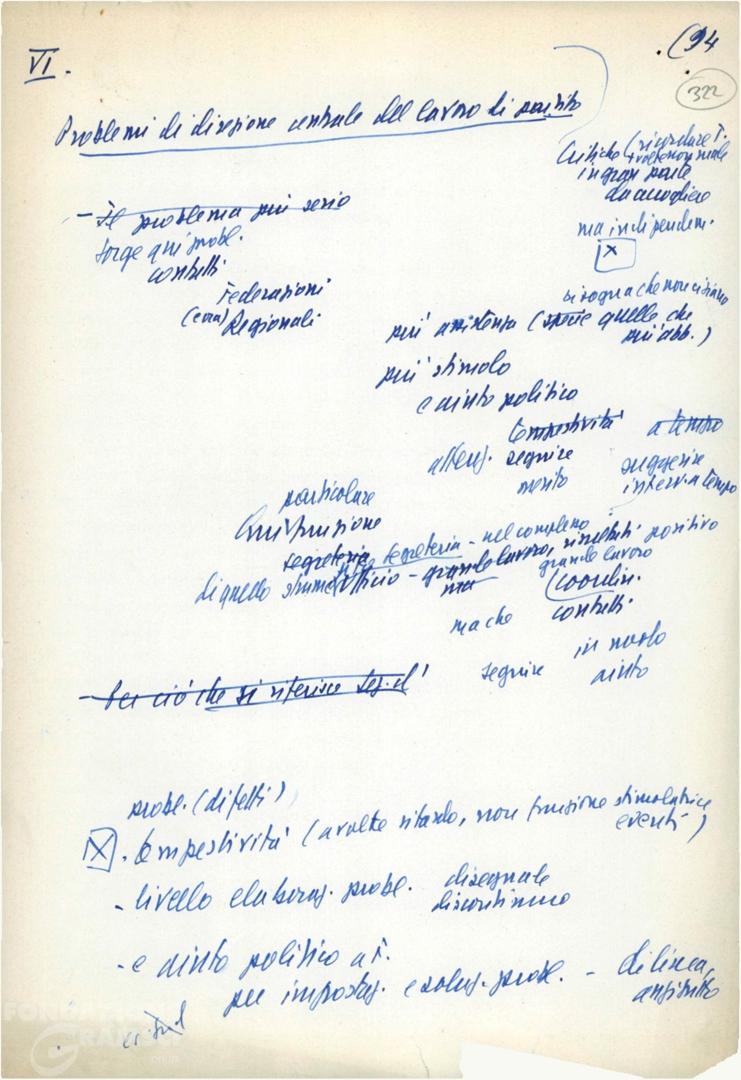 VI.
(94
322
Problemi di direzione centrale del lavoro di partito
Critiche (ricordare F.
in gran parte
da accogliere
ma indipendem.
X
- Il problema più serio
sorge qui probl.
contatti
Federazioni
(e ora) Regionali
bisogna che non ci siano
più assistenza (specie quelle che
più abb.)
più stimolo
e aiuto politico
tempestività a tempo
attenz. seguire suggerire
merito interv. a tempo
particolare
funzione
segreteria segreteria - nel complesso positivo
di quello strum. ufficio - grande lavoro, risultati
grande lavoro
ma coordin.
ma che contatti
in modo
seguire aiuto
- Per ciò che si riferisce seg. d'
probl. (difetti)
X . tempestività (a volte ritardo, non funzione stimolatrice
eventi)
- livello elaboraz. probl. diseguale
discontinuo
- e aiuto politico a F.
per impostaz. e soluz. probl. - di linea,
anzitutto
FONDAZIONE
GRAMSCI